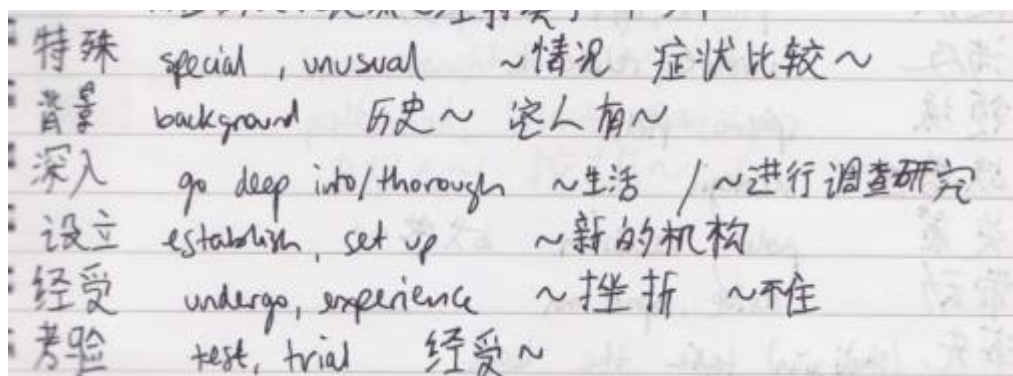 特殊 special, unusual ~情况 症状比较~
背景 background 历史~ 这人有~
深入 go deep into/thorough ~生活 /~进行调查研究
设立 establish, set up ~新的机构
经受 undergo, experience ~挫折 ~不住
考验 test, trial 经受~